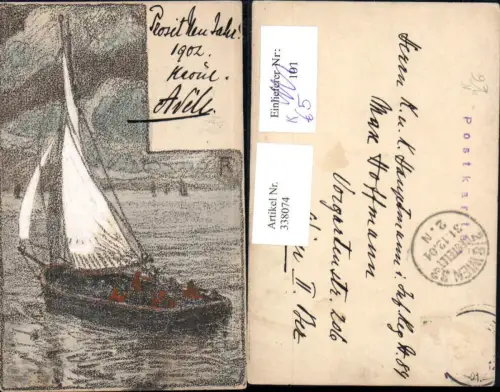 Prosit Neu Jahr!
1902.
Krone.
Adele
R
Einlieferer Nr:
101
K
5
Artikel Nr.
338074
Postkarte
Herrn K. u. K. Hauptmann i. Inf. Reg. N. 84
Max Hoffmann
Vorgartenstr. 206
Wien II. Bez
WIEN
31.12.04
2. N